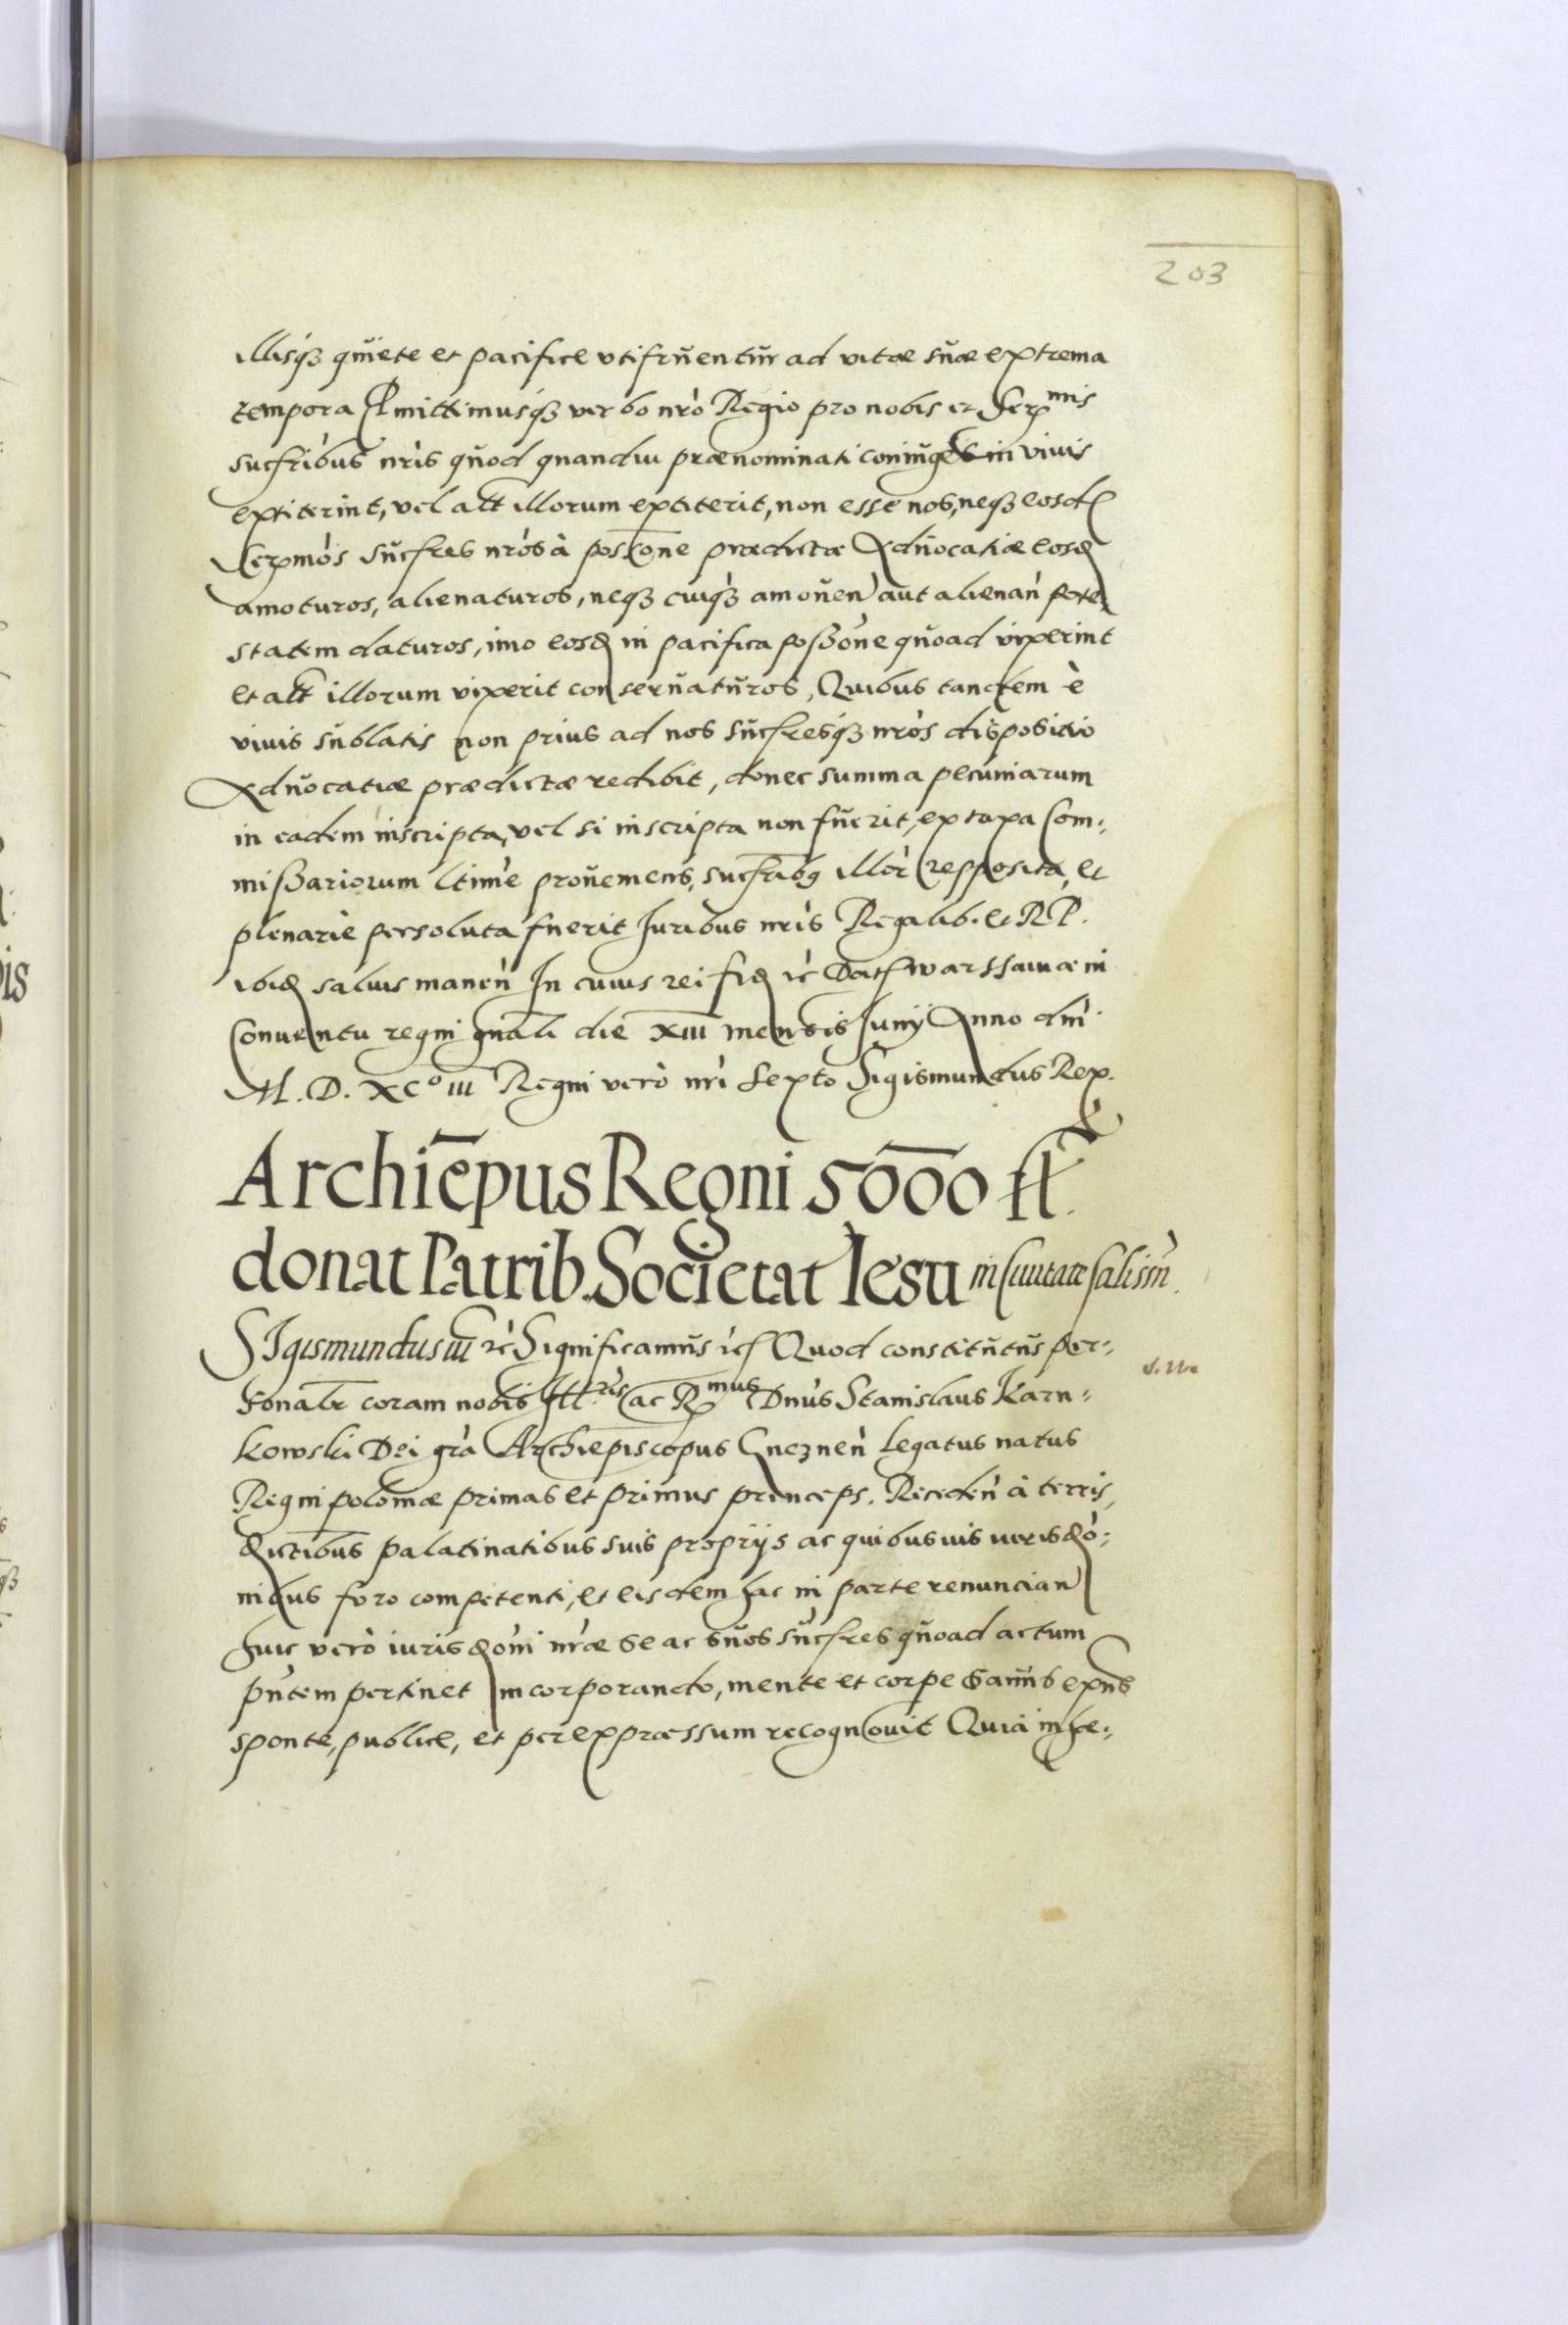 203
illisq₃ quiete et pacifice vtifruentur ad vitæ suæ extrema
tempora Pmittimusq₃ verbo nrò Regio pro nobis et Serᵐⁱˢ
sucfribus nris quod quandiu prænominati coniuges in viuis
extiterint, vel alt illorum extiterit, non esse nos, neq₃ eosd
Sermos sucfres nros à possone prædictæ Aduocatiæ eosd
amoturos, alienaturos, neq₃ cuiq₃ amouen aut alienan pote
statem daturos, imo eosd in pacifica possone quoad vixerint
et alt illorum vixerit conseruaturos, Quibus tandem è
viuis sublatis non prius ad nos sucfresq₃ nros dispositio
Aduocatiæ prædictæ redibit, donec summa pecuniarum
in eadem inscripta, vel si inscripta non fuerit, ex taxa Com
missariorum ltime proueniens, sucfribq illor repposita, et
plenarie persoluta fuerit Juribus nris Regalib. et RP.
ibid saluis manen In cuius rei fid rc Dat Warssauiæ in
Conuentu regni gnali die XIII mensis Junij Anno dni
M. D. XCº III Regni vero nri Sexto Sigismundus Rex.
Archiepus Regni 5000 fl.
donat Patrib. Societat Iesu in Ciuitate Calissin.
SIgismundus III rc Significamus rc Quod constitutus per
sonalr coram nobis Illʳⁱˢ ac Rᵐᵘˢ Dnus Stanislaus Karn
kowski Dei gra Archiepiscopus Gneznen Legatus natus
Regni poloniæ primas et primus princeps. Receden à terris,
districtibus palatinatibus suis proprijs ac quibusuis iurisdo
nibus foro competenti, et eisdem hac in parte renuncian
huic vero iurisdoni nræ se ac suos sucfres quoad actum
pntem pertinet incorporando, mente et corpe sanus exns
sponte, publice, et per expræssum recognouit Quia in he